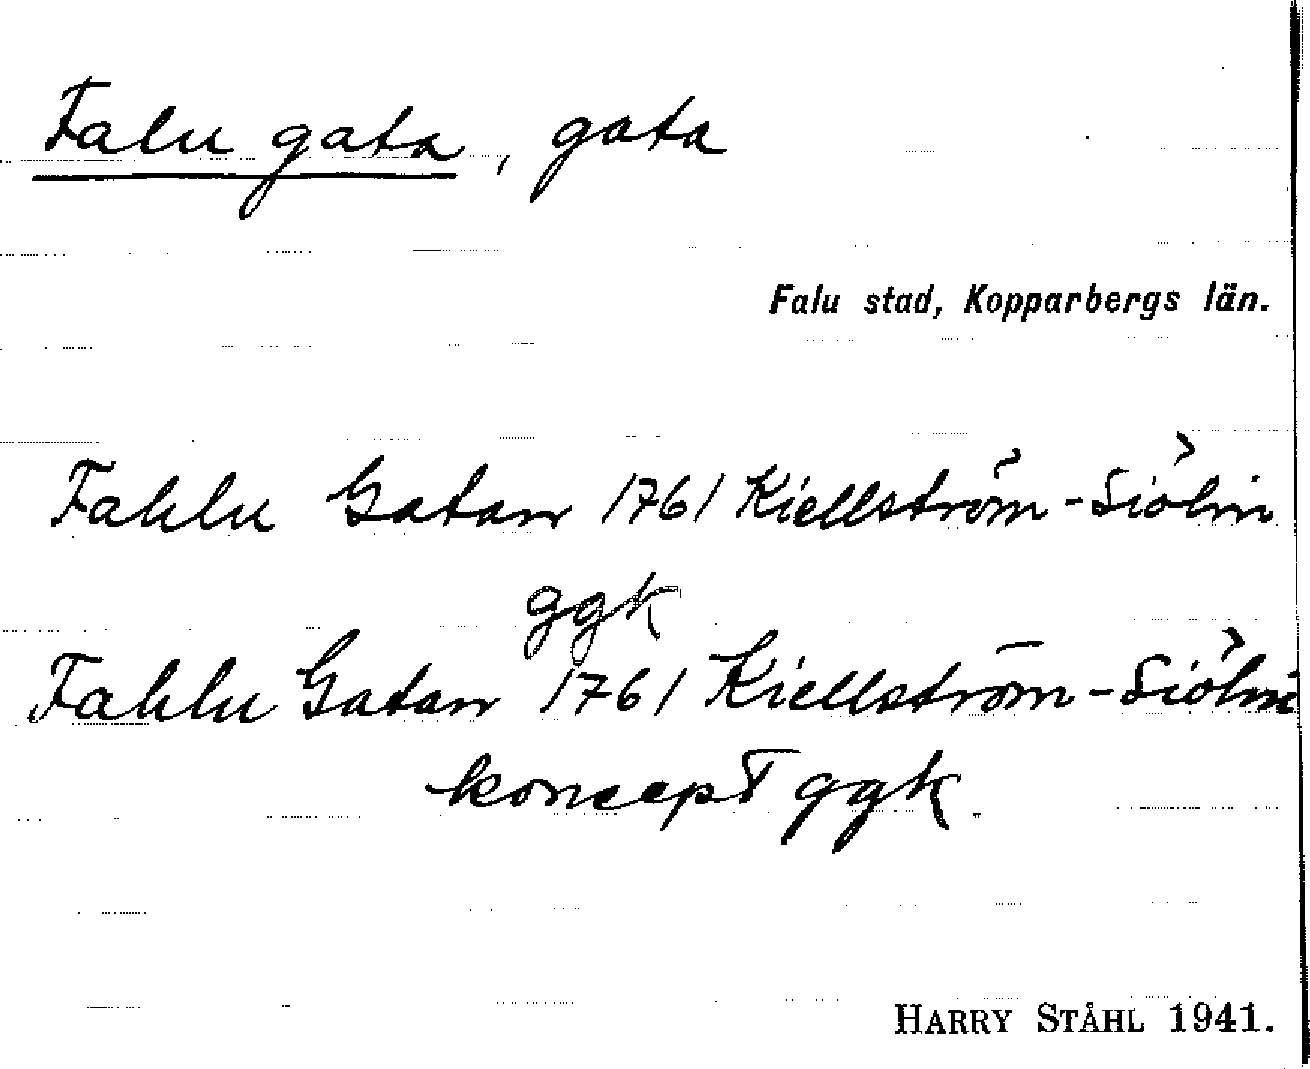 Falu gata, gata
Falu stad, Kopparbergs län.
Fahlu Gatan 1761 Kiellström-Siölin
ggk
Fahlu Gatan 1761 Kiellström-Siölin
koncept ggk.
HARRY STÅHL 1941.